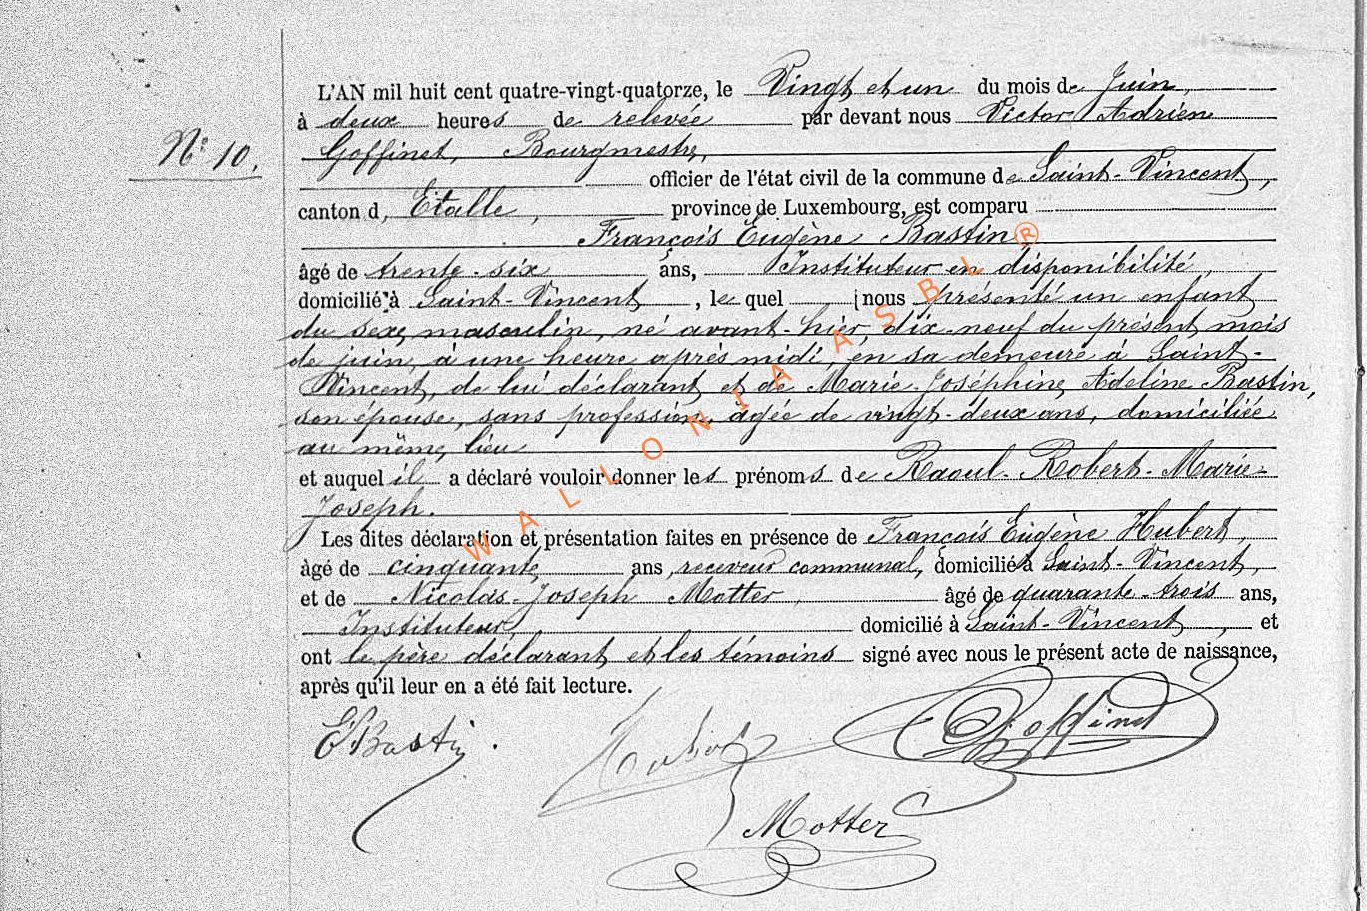 L'AN mil huit cent quatre-vingt-quatorze, le Vingt et un du mois de Juin,
à deux heures de relevée par devant nous Victor Adrien
N° 10.
Goffinet, Bourgmestre,
officier de l'état civil de la commune de Saint-Vincent,
canton d, Etalle, province de Luxembourg, est comparu
François Eugène Bastin
âgé de trente-six ans, Instituteur en disponibilité,
domicilié à Saint-Vincent, le quel nous présenté un enfant
du sexe masculin, né avant-hier, dix-neuf du présent mois
de juin, à une heure après midi, en sa demeure à Saint-
Vincent, de lui déclarant et de Marie-Joséphine Adeline Bastin,
son épouse, sans profession, âgée de vingt-deux ans, domiciliée
au même lieu
et auquel il a déclaré vouloir donner les prénoms de Raoul-Robert-Marie-
Joseph.
Les dites déclaration et présentation faites en présence de François Eugène Hubert,
âgé de cinquante ans, receveur communal, domicilié à Saint-Vincent,
et de Nicolas-Joseph Motter, âgé de quarante-trois ans,
Instituteur, domicilié à Saint-Vincent, et
ont le père déclarant et les témoins signé avec nous le présent acte de naissance,
après qu'il leur en a été fait lecture.
E Bastin. Hubert Goffinet
Motter
WALLONIA ASBL ®